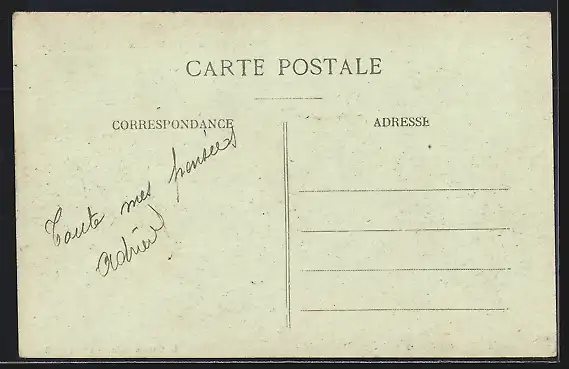 CARTE POSTALE
CORRESPONDANCE
ADRESSE
Toute mes pensées
Adrien